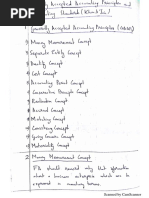 Generally Accepted Accounting Principles and
Accounting Standards
1 Generally Accepted Accounting Principles (GAAP)
1) Money Measurement Concept
2) Separate Entity Concept
3) Duality Concept
4) Cost Concept
5) Accounting Period Concept
6) Conservatism Principle Concept
7) Realisation Concept
8) Accrual Concept
9) Matching Concept
10) Consistency Concept
11) Going Concern Concept
12) Materiality Concept
2 Money Measurement Concept
FTs should record only that information
which a business enterprise which are to
expressed in monetary terms.
Scanned by CamScanner